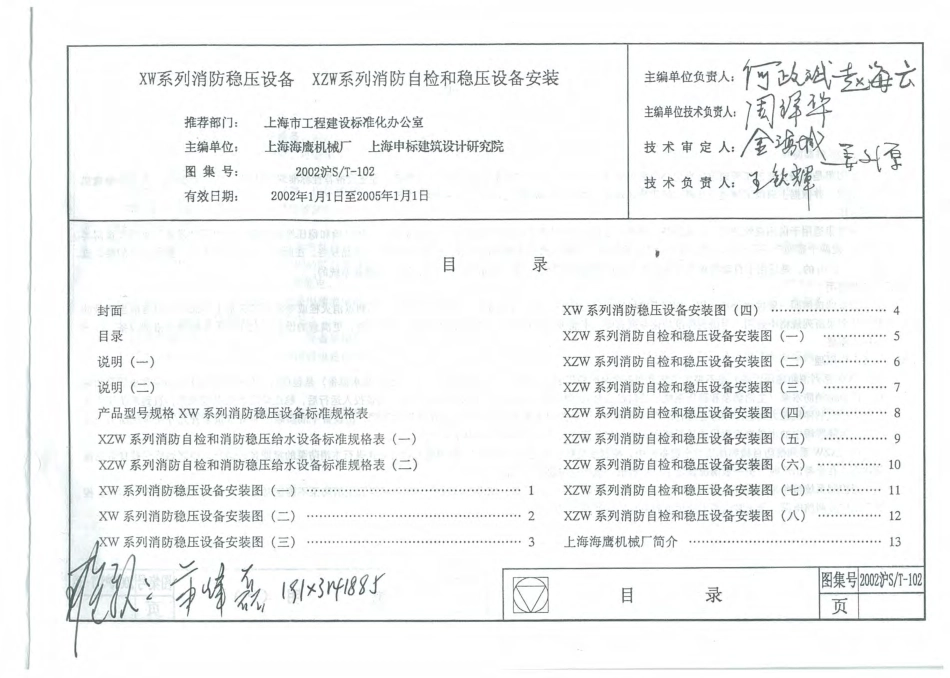 XW系列消防稳压设备 XZW系列消防自检和稳压设备安装
推荐部门： 上海市工程建设标准化办公室
主编单位： 上海海鹰机械厂 上海申标建筑设计研究院
图集号： 2002沪S/T-102
有效日期： 2002年1月1日至2005年1月1日
主编单位负责人：
主编单位技术负责人：
技术审定人：
技术负责人： 王钦辉
目 录
封面
目录
说明（一）
说明（二）
产品型号规格 XW 系列消防稳压设备标准规格表
XZW 系列消防自检和消防稳压给水设备标准规格表（一）
XZW 系列消防自检和消防稳压给水设备标准规格表（二）
XW 系列消防稳压设备安装图（一）………………………………… 1
XW 系列消防稳压设备安装图（二）………………………………… 2
XW 系列消防稳压设备安装图（三）………………………………… 3
XW 系列消防稳压设备安装图（四）……………… 4
XZW 系列消防自检和稳压设备安装图（一）………… 5
XZW 系列消防自检和稳压设备安装图（二）………… 6
XZW 系列消防自检和稳压设备安装图（三）………… 7
XZW 系列消防自检和稳压设备安装图（四）………… 8
XZW 系列消防自检和稳压设备安装图（五）………… 9
XZW 系列消防自检和稳压设备安装图（六）………… 10
XZW 系列消防自检和稳压设备安装图（七）………… 11
XZW 系列消防自检和稳压设备安装图（八）………… 12
上海海鹰机械厂简介 ……………………………… 13
目 录
图集号 2002沪S/T-102
页